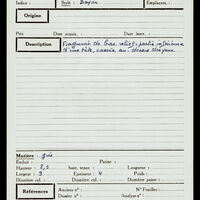 Indice : Style : Emplacem. :
Origine
Prix Date acquis. Date inv.
Description Fragment de bas relief, partie inférieure
d'une tête, cassée au-dessus des yeux.
Matière : gris
Enduit : Patine :
Hauteur : 8,5 haut. tenon : Longueur :
Largeur : 9 Épaisseur : 4 Poids :
Diamètre : Diamètre col. : Diamètre panse :
Références Anciens n° : N° Fouilles :
Dessin n° : Analyse n° :